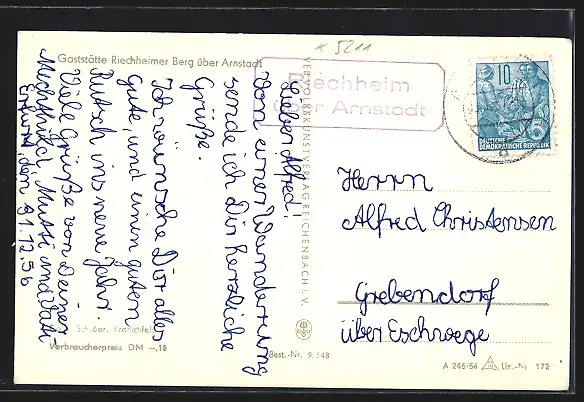 Gaststätte Riechheimer Berg über Arnstadt
K 5211
Riechheim
über Arnstadt
10
DEUTSCHE
DEMOKRATISCHE REPUBLIK
Erfurt, den 31.12.56
Lieber Alfred!
Von einer Wanderung
sende ich Dir herzliche
Grüße.
Ich wünsche Dir alles
Gute, und einen guten
Rutsch ins neue Jahr.
Viele Grüße von Deiner
Mechthild, Mutti und Vati
Herrn
Alfred Christensen
Grebendorf
über Eschwege
VEB VOLKSKUNSTVERLAG REICHENBACH I. V.
Kranichfeld
Verbraucherpreis DM -,18
Best.-Nr. 9/548
A 246/56 Liz.-Nr 172